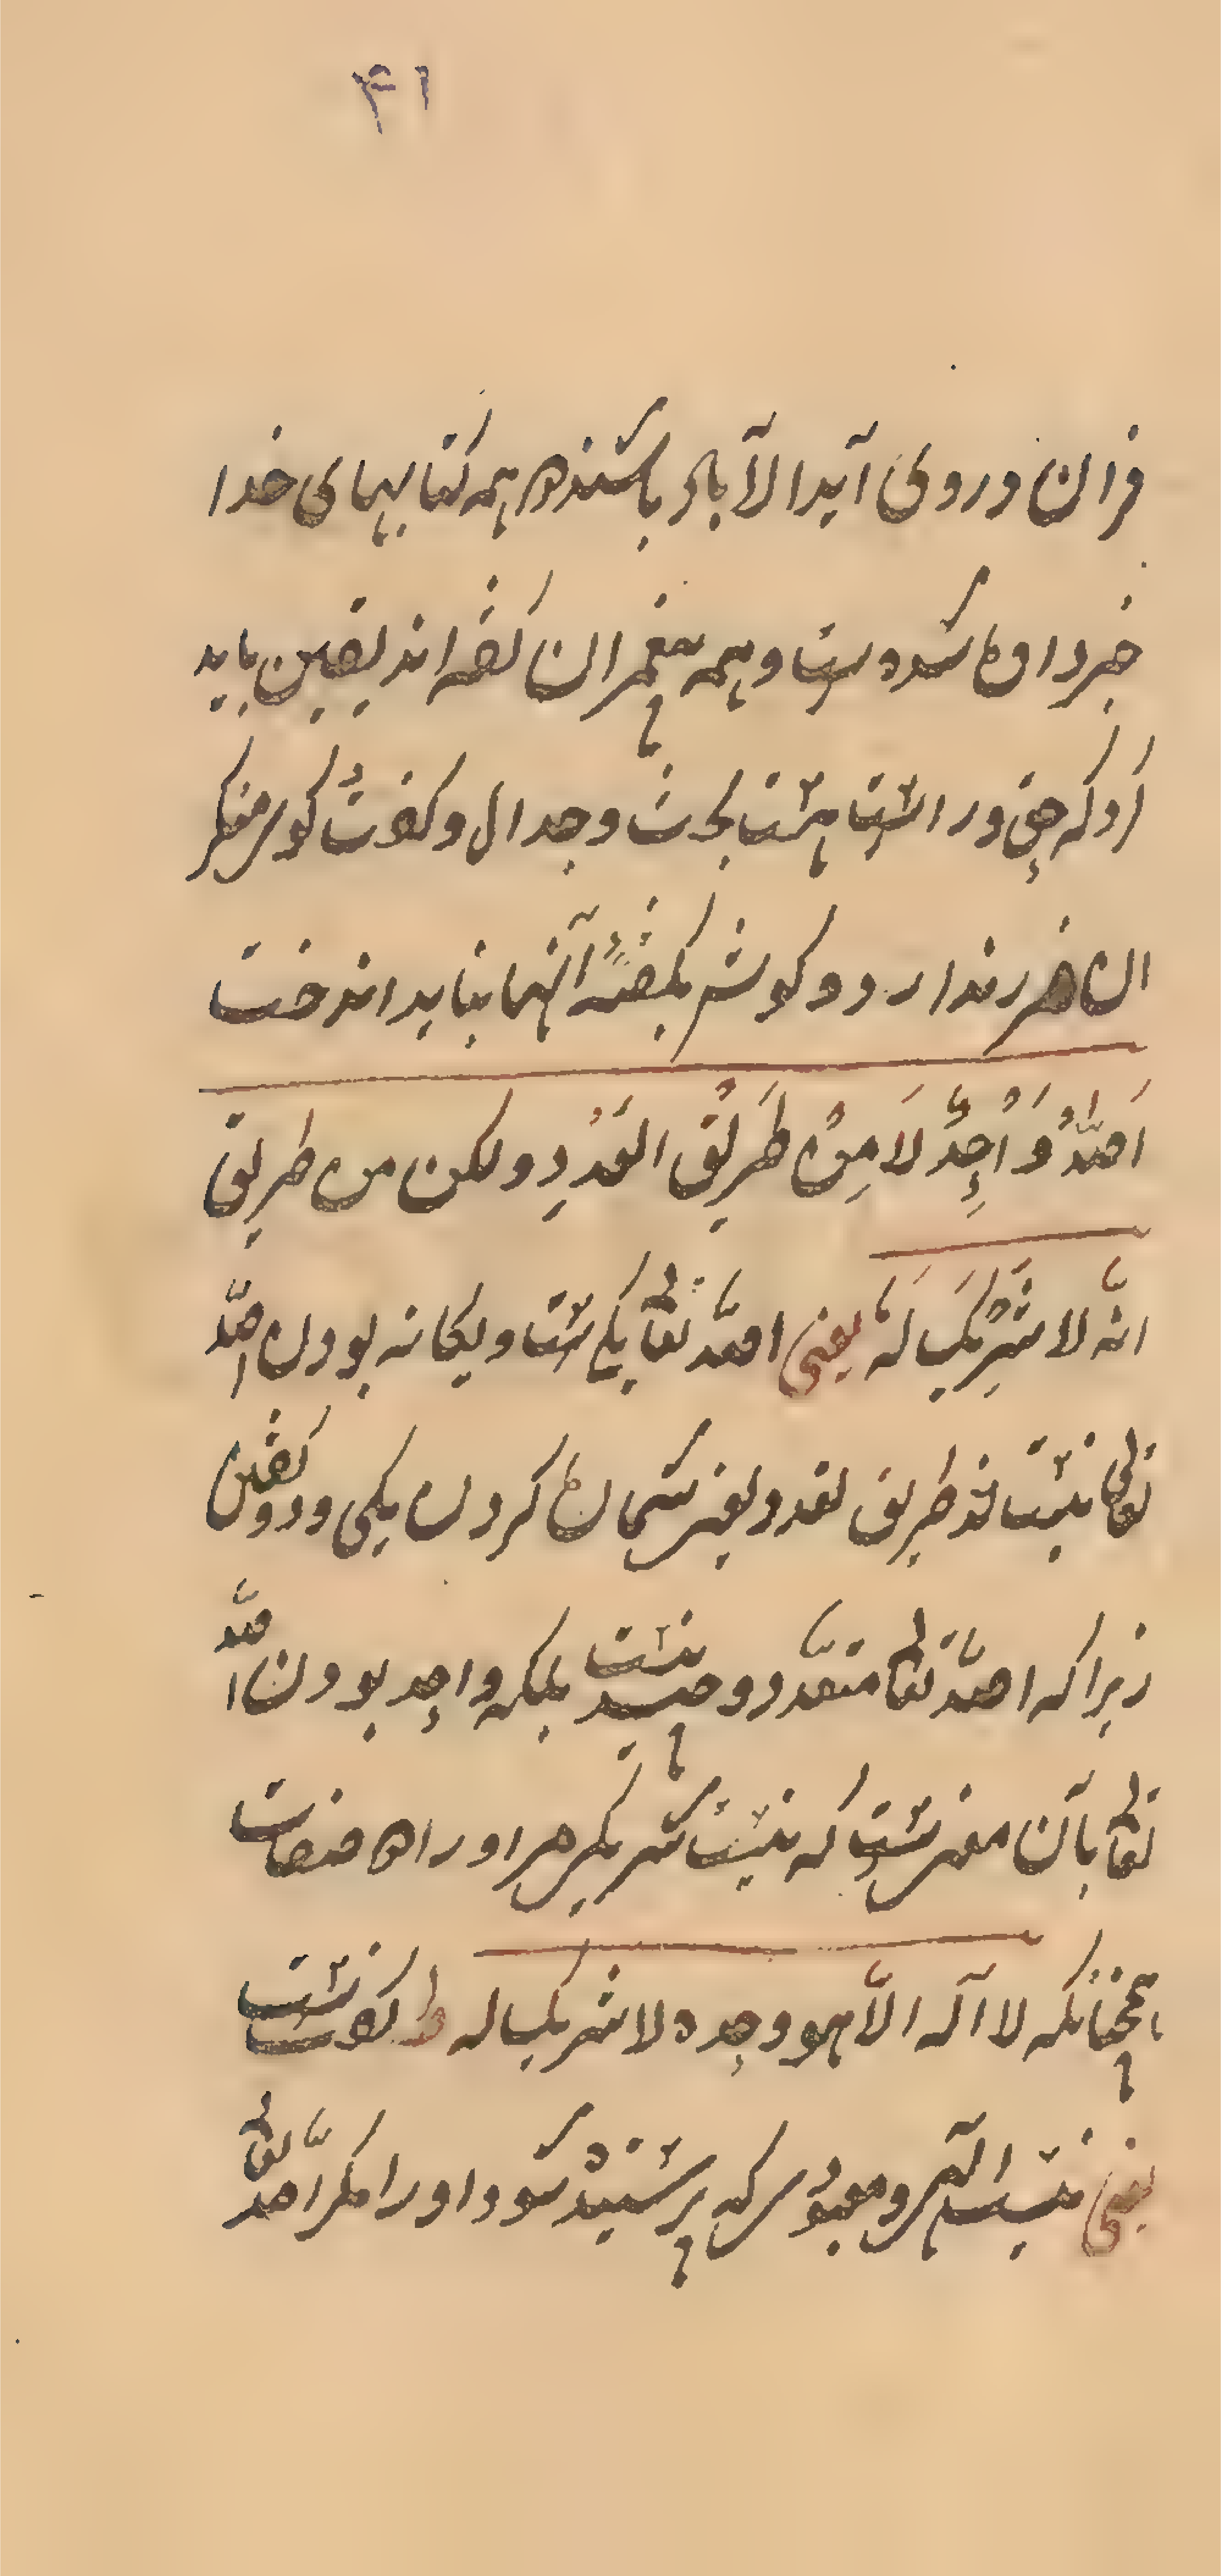 ۴۱
قران و روی ابدا لآباد باشنده همه کتابهای خدا
خبر داده شده است و همه پیغمبران گفته اند یقین باید
کرد که حق و راست است بحث و جدال و گفت گوی منکر
ان ضرر ندارد و گوش بگفتهٔ آنها نباید انداخت
اَللّٰهُ وَاحِدٌ لَا مِنْ طَرِيْقِ العَدَدِ ولكن من طريق
انّه لا شَرِيْكَ لَهُ یعنی اللّه تعالی یک است و یکانه بودن اللّه
تعالی نیست از طریق تعدد یعنی شمان کردن یکی و دو گفتن
زیرا که اللّه تعالی متعدّد و چند نیست بلکه واحد بودن اللّه
تعالی بآن معنی است که نیست شریکی مر او را در صفات
همچنانکه لا آله الّا هو وحده لا شریک له گفته است
یعنی نیست الهی و معبودی که پرستیده شود او را مگر اللّه تعالی